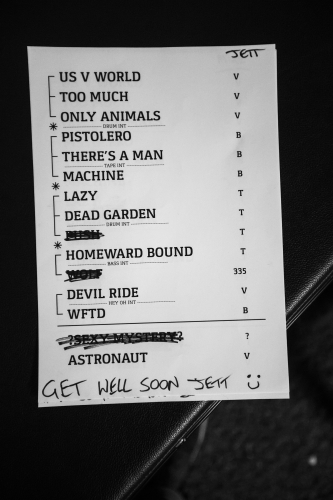 JETT
US V WORLD V
TOO MUCH V
ONLY ANIMALS V
DRUM INT
* PISTOLERO B
THERE'S A MAN B
TAPE INT
MACHINE B
* LAZY T
DEAD GARDEN T
DRUM INT
T
* HOMEWARD BOUND T
BASS INT
WOLF 335
DEVIL RIDE V
HEY OH INT
WFTD B
?SEXY MYSTERY? ?
ASTRONAUT V
GET WELL SOON JETT